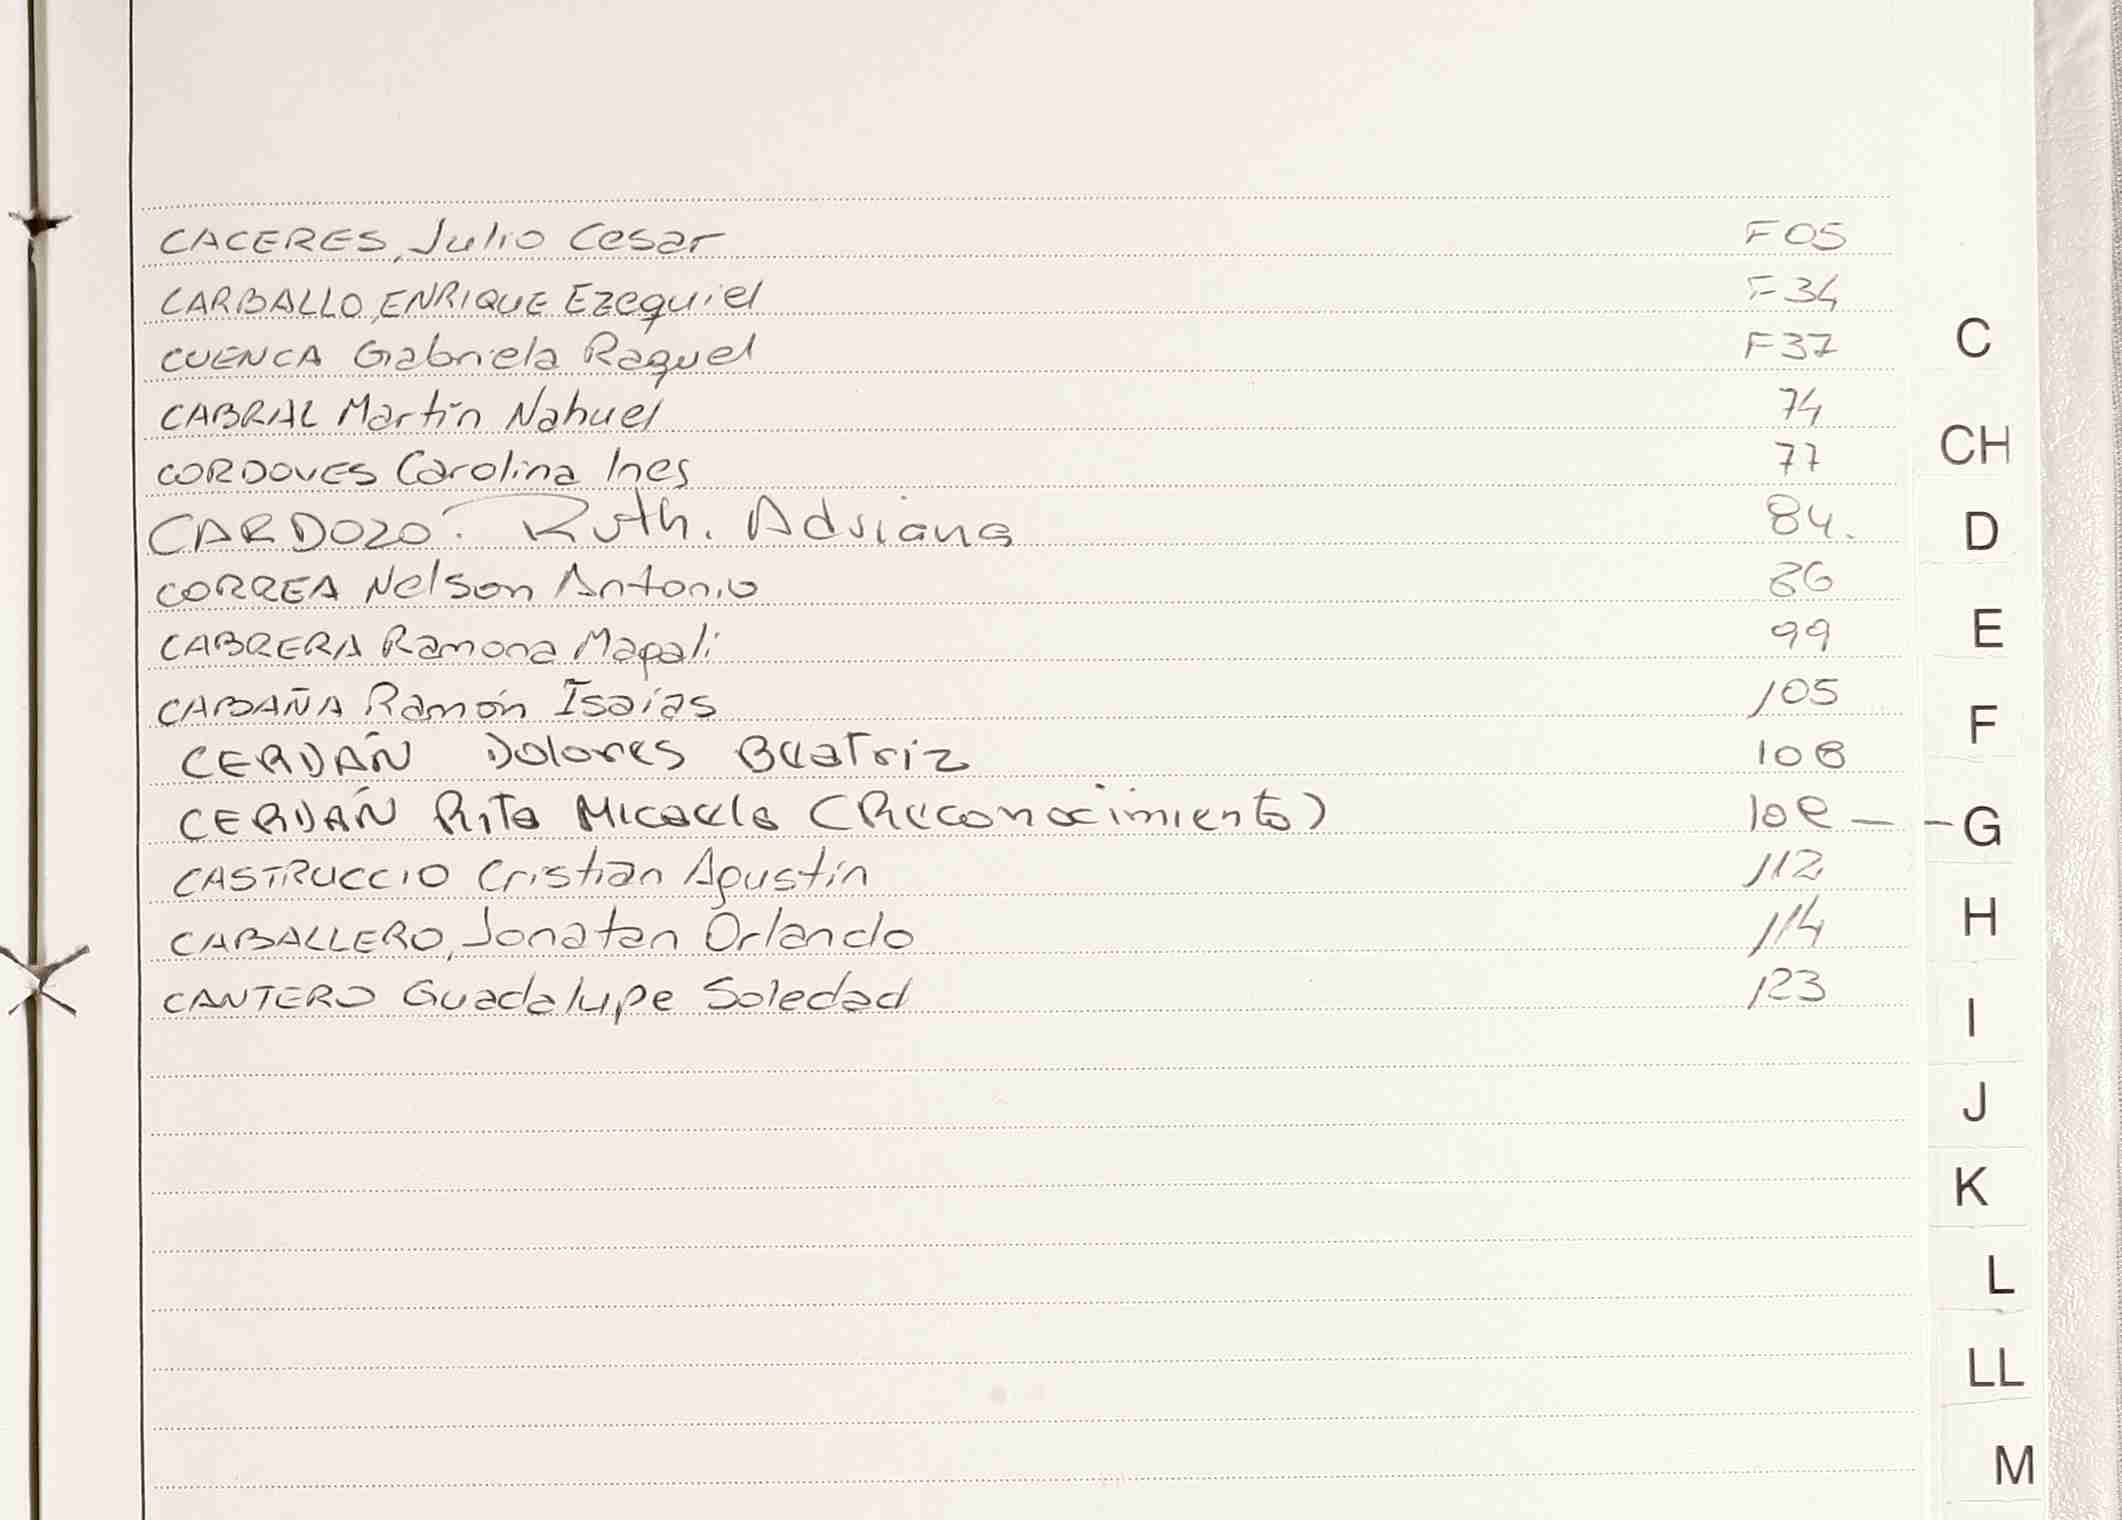 CACERES, Julio Cesar F 05
CARBALLO, ENRIQUE Ezequiel F 34
CUENCA Gabriela Raquel F 37
CABRAL Martín Nahuel 74
CORDOVES Carolina Ines 77
CARDOZO. Ruth. Adriana 84.
CORREA Nelson Antonio 86
CABRERA Ramona Magali 99
CABAÑA Ramón Isaías 105
CERDÁN Dolores Beatriz 108
CERDÁN Rita Micaela (Reconocimiento)
CASTRUCCIO Cristian Agustín 112
CABALLERO, Jonatan Orlando 114
CANTERO Guadalupe Soledad 123
C
CH
D
E
F
G
H
I
J
K
L
LL
M